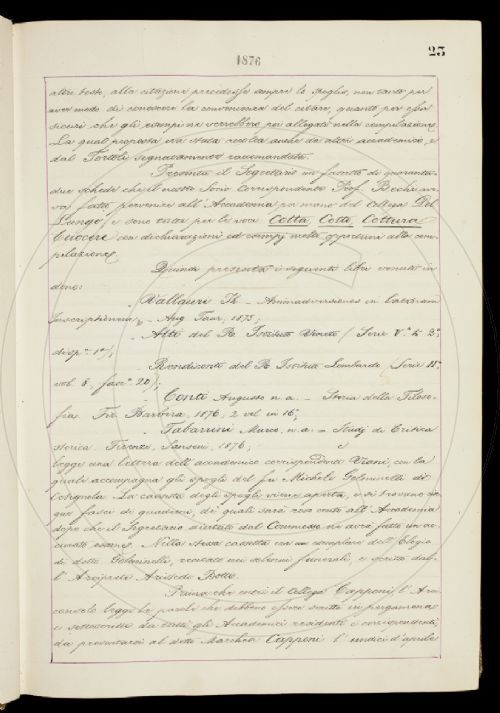 23
1876
altri testi, alla citazione precedesse sempre lo spoglio, non tanto per
aver modo di conoscere la convenienza del citare, quanto per esser
sicuri che gli esempi ne verrebbero poi allegati nella compilazione.
La qual proposta era stata accolta anche da altri accademici, e
dal Tortoli segnatamente raccomandata.
Presenta il Segretario un fascetto di quaranta-
due schede che il nostro Socio Corrispondente Prof. Bechi aveva
fatto pervenire all'Accademia per mano del Collega Del
Lungo e sono tutte per le voci Cotta, Cotto, Cottura
Cuocere con dichiarazioni ed esempj molto opportuni alla com-
pilazione.
Quindi presenta i seguenti libri venuti in
dono:
Vallauri Th. - Animadversiones in
Inscriptionem - Aug. Taur., 1875;
- Atti del R. Istituto Veneto (Serie V.a t. 2.o
disp.e 1.a);
- Rendiconti del R. Istituto Lombardo (Serie II.a
vol. 8, fasc.o 20);
- Conti Augusto n. a. - Storia della Filoso-
fia. Fir. Barbèra, 1876, 2 vol. in 16.o;
- Tabarrini Marco, n. a. - Studj di Critica
storica. Firenze, Sansoni, 1876; e
legge una lettera dell'accademico corrispondente Viani, con la
quale accompagna gli spogli del fu Michele Dolcinelli di
La cassetta degli spogli viene aperta, e si trovano
fasci di quaderni, de' quali sarà reso conto all'Accademia
dopo che il Segretario aiutato dal Commesso ne avrà fatto un ac-
curato esame. Nella stessa cassetta era un esemplare dell'Elogio
di detto recitato nei solenni funerali, e scritto dal-
l'Arciprete Aristide Botto.
Prima che entri il Collega Capponi l'Arci-
consolo legge le parole che debbono essere scritte in pergamena
e sottoscritte da tutti gli Accademici residenti e corrispondenti,
da presentarsi al detto Marchese Capponi l'undici d'aprile